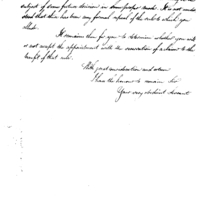 subject of some future decision in some proper mode. It is not under
stood that there has been any formal repeal of the rule to which you
allude.
It remains then for you to determine whether you will
or not accept the appointment with the reservation of a
the
of that rule.
With great consideration and esteem
I have the honour to remain Sir
Your very obedient Servant